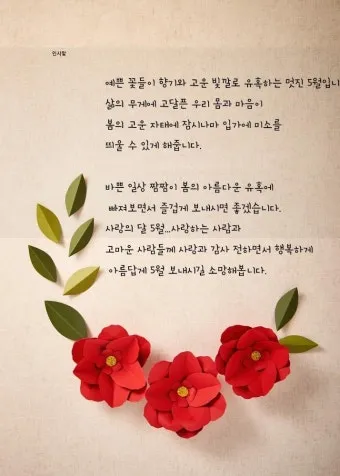 인사말
예쁜 꽃들이 향기와 고운 빛깔로 유혹하는 멋진 5월입니
삶의 무게에 고달픈 우리 몸과 마음이
봄의 고운 자태에 잠시나마 입가에 미소를
띄울 수 있게 해줍니다.
바쁜 일상 짬짬이 봄의 아름다운 유혹에
빠져보면서 즐겁게 보내시면 좋겠습니다.
사랑의 달 5월...사랑하는 사람과
고마운 사람들께 사랑과 감사 전하면서 행복하게
아름답게 5월 보내시길 소망해봅니다.